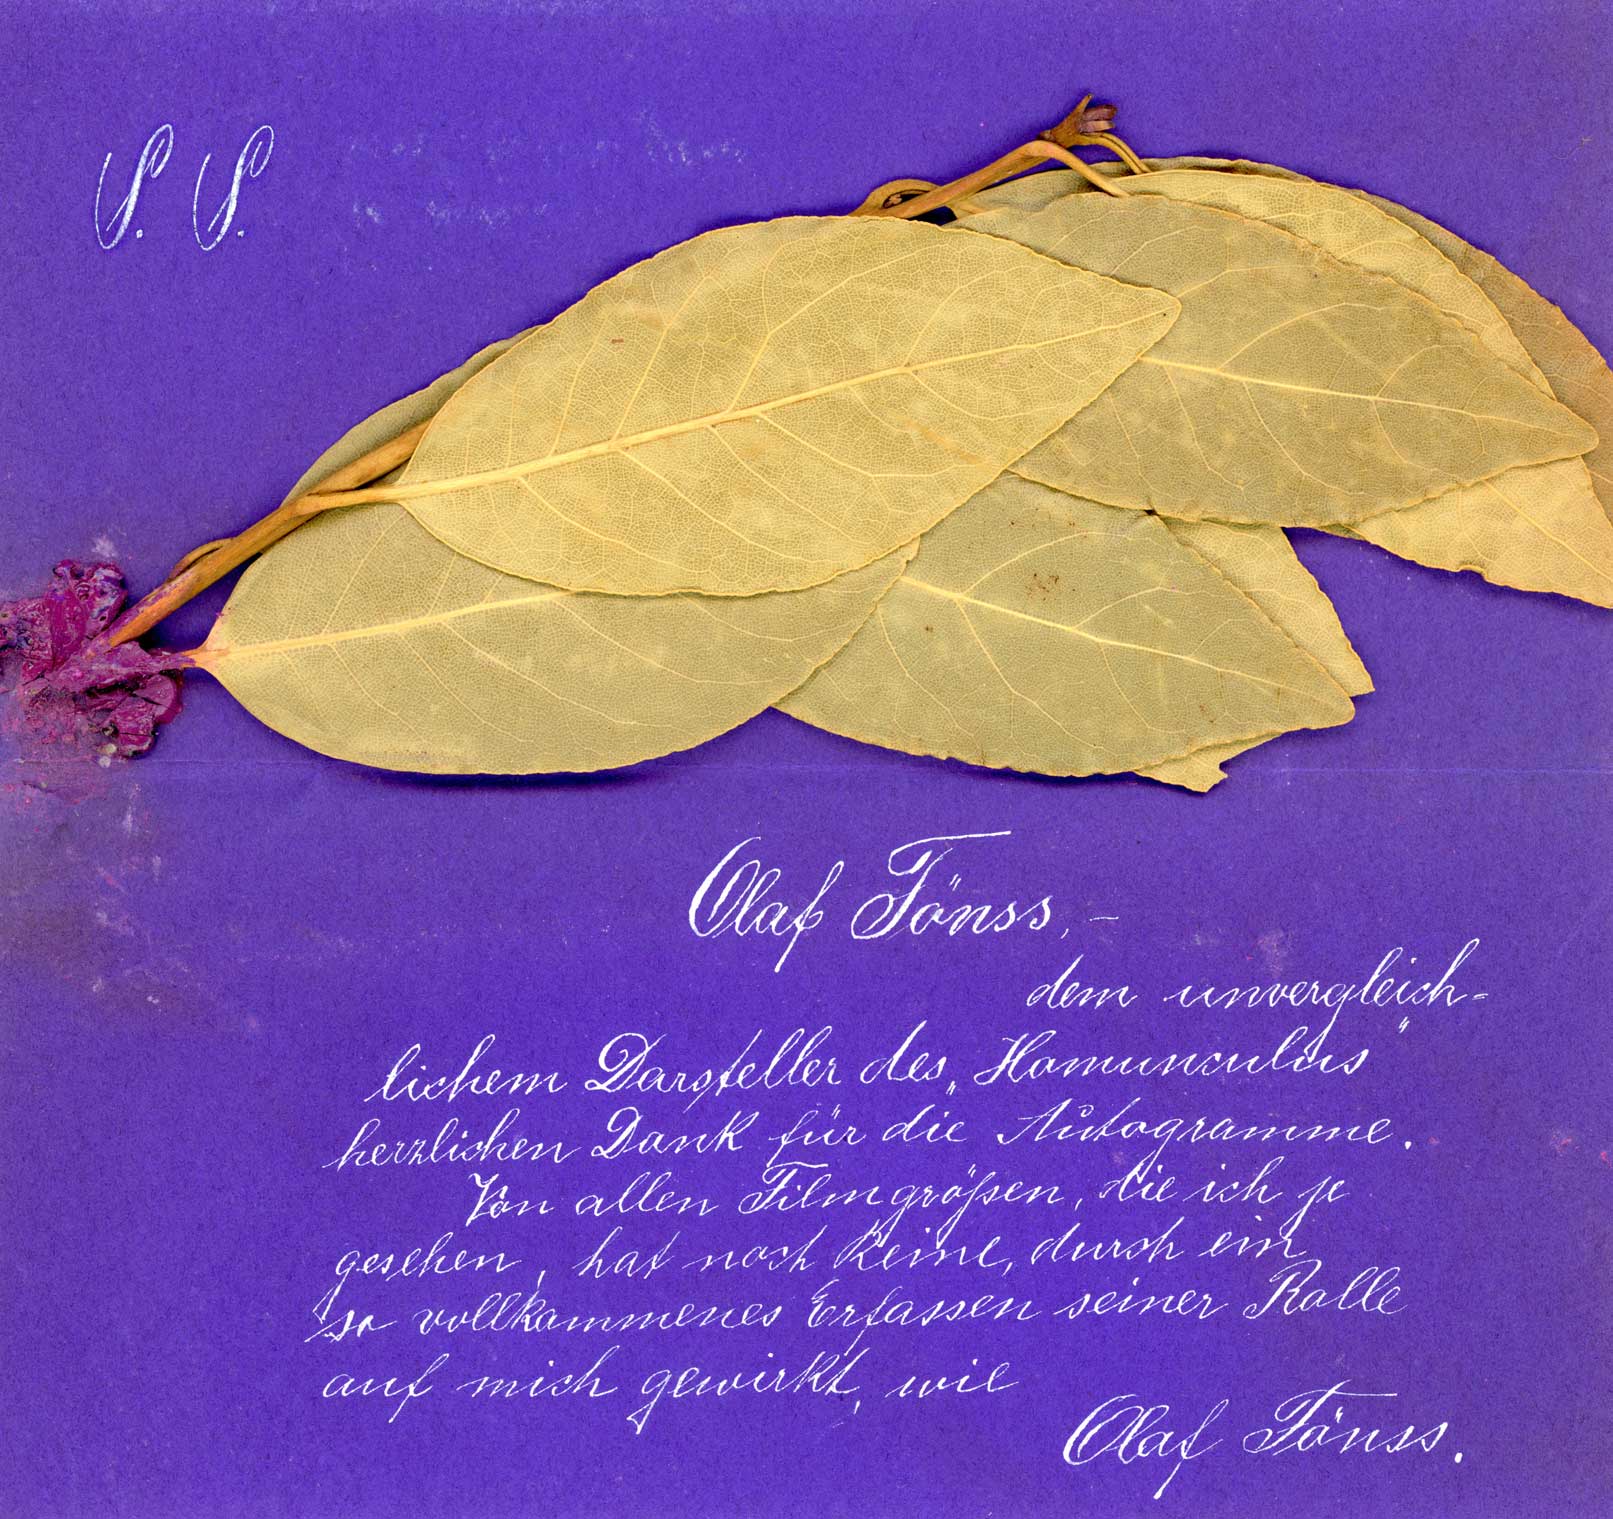 S. S.
Olaf Fönss, –
dem unvergleich-
lichem Darsteller des „Homunculus“
herzlichen Dank für die Autogramme.
Von allen Filmgrößen, die ich je
gesehen, hat noch keine, durch ein
so vollkommenes Erfassen seiner Rolle
auf mich gewirkt, wie
Olaf Fönss.